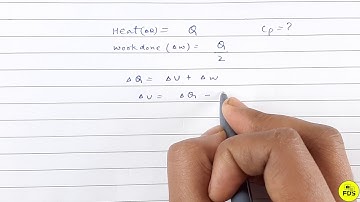 Heat(ΔQ) = Q Cp = ?
work done (Δw) = Q/2
ΔQ = ΔU + Δw
ΔU = ΔQ -
FDS